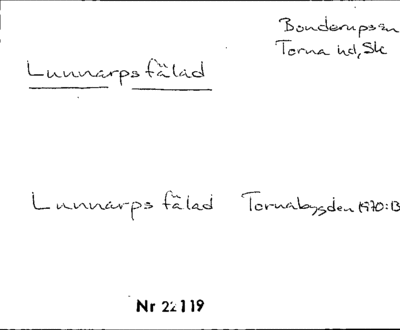 Bonderupssn
Torna hd, Sk
Lunnarps fälad
Lunnarps fälad Tornabygden 1970:13
Nr 22119